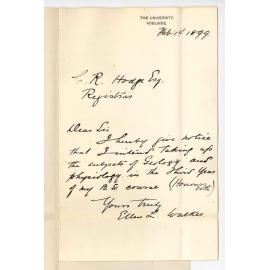 THE UNIVERSITY,
ADELAIDE.
Feb. 1st 1899
C. R. Hodge Esq.
Registrar
Dear Sir
I hereby give notice
that I intend taking up
the subjects of Geology and
physiology in the Third Year
of my B.Sc. course (Honours
Yours truly
Ellen L. Walker